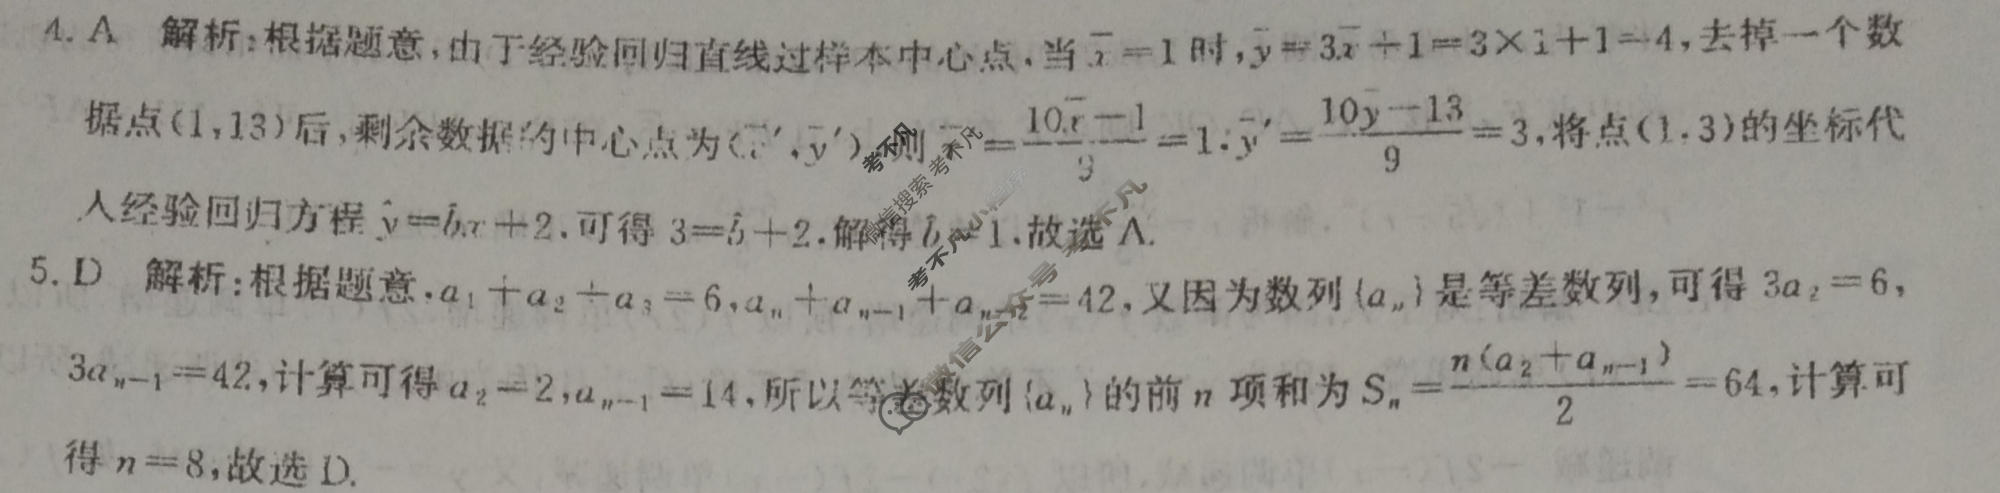 4. A 解析:根据题意,由于经验回归直线过样本中心点,当 x̄=1 时,ȳ=3x̄+1=3×1+1=4,去掉一个数
据点(1,13)后,剩余数据的中心点为(x̄′,ȳ′),则 x̄′=(10x̄−1)/9=1,ȳ′=(10ȳ−13)/9=3,将点(1,3)的坐标代
入经验回归方程 ŷ=b̂x+2,可得 3=b̂+2,解得 b̂=1,故选 A.
5. D 解析:根据题意,a₁+a₂+a₃=6,aₙ+aₙ₋₁+aₙ₋₂=42,又因为数列{aₙ}是等差数列,可得 3a₂=6,
3aₙ₋₁=42,计算可得 a₂=2,aₙ₋₁=14,所以等差数列{aₙ}的前 n 项和为 Sₙ=n(a₂+aₙ₋₁)/2=64,计算可
得 n=8,故选 D.
考不凡
微信搜索 考不凡
考不凡小程序
微信公众号 考不凡